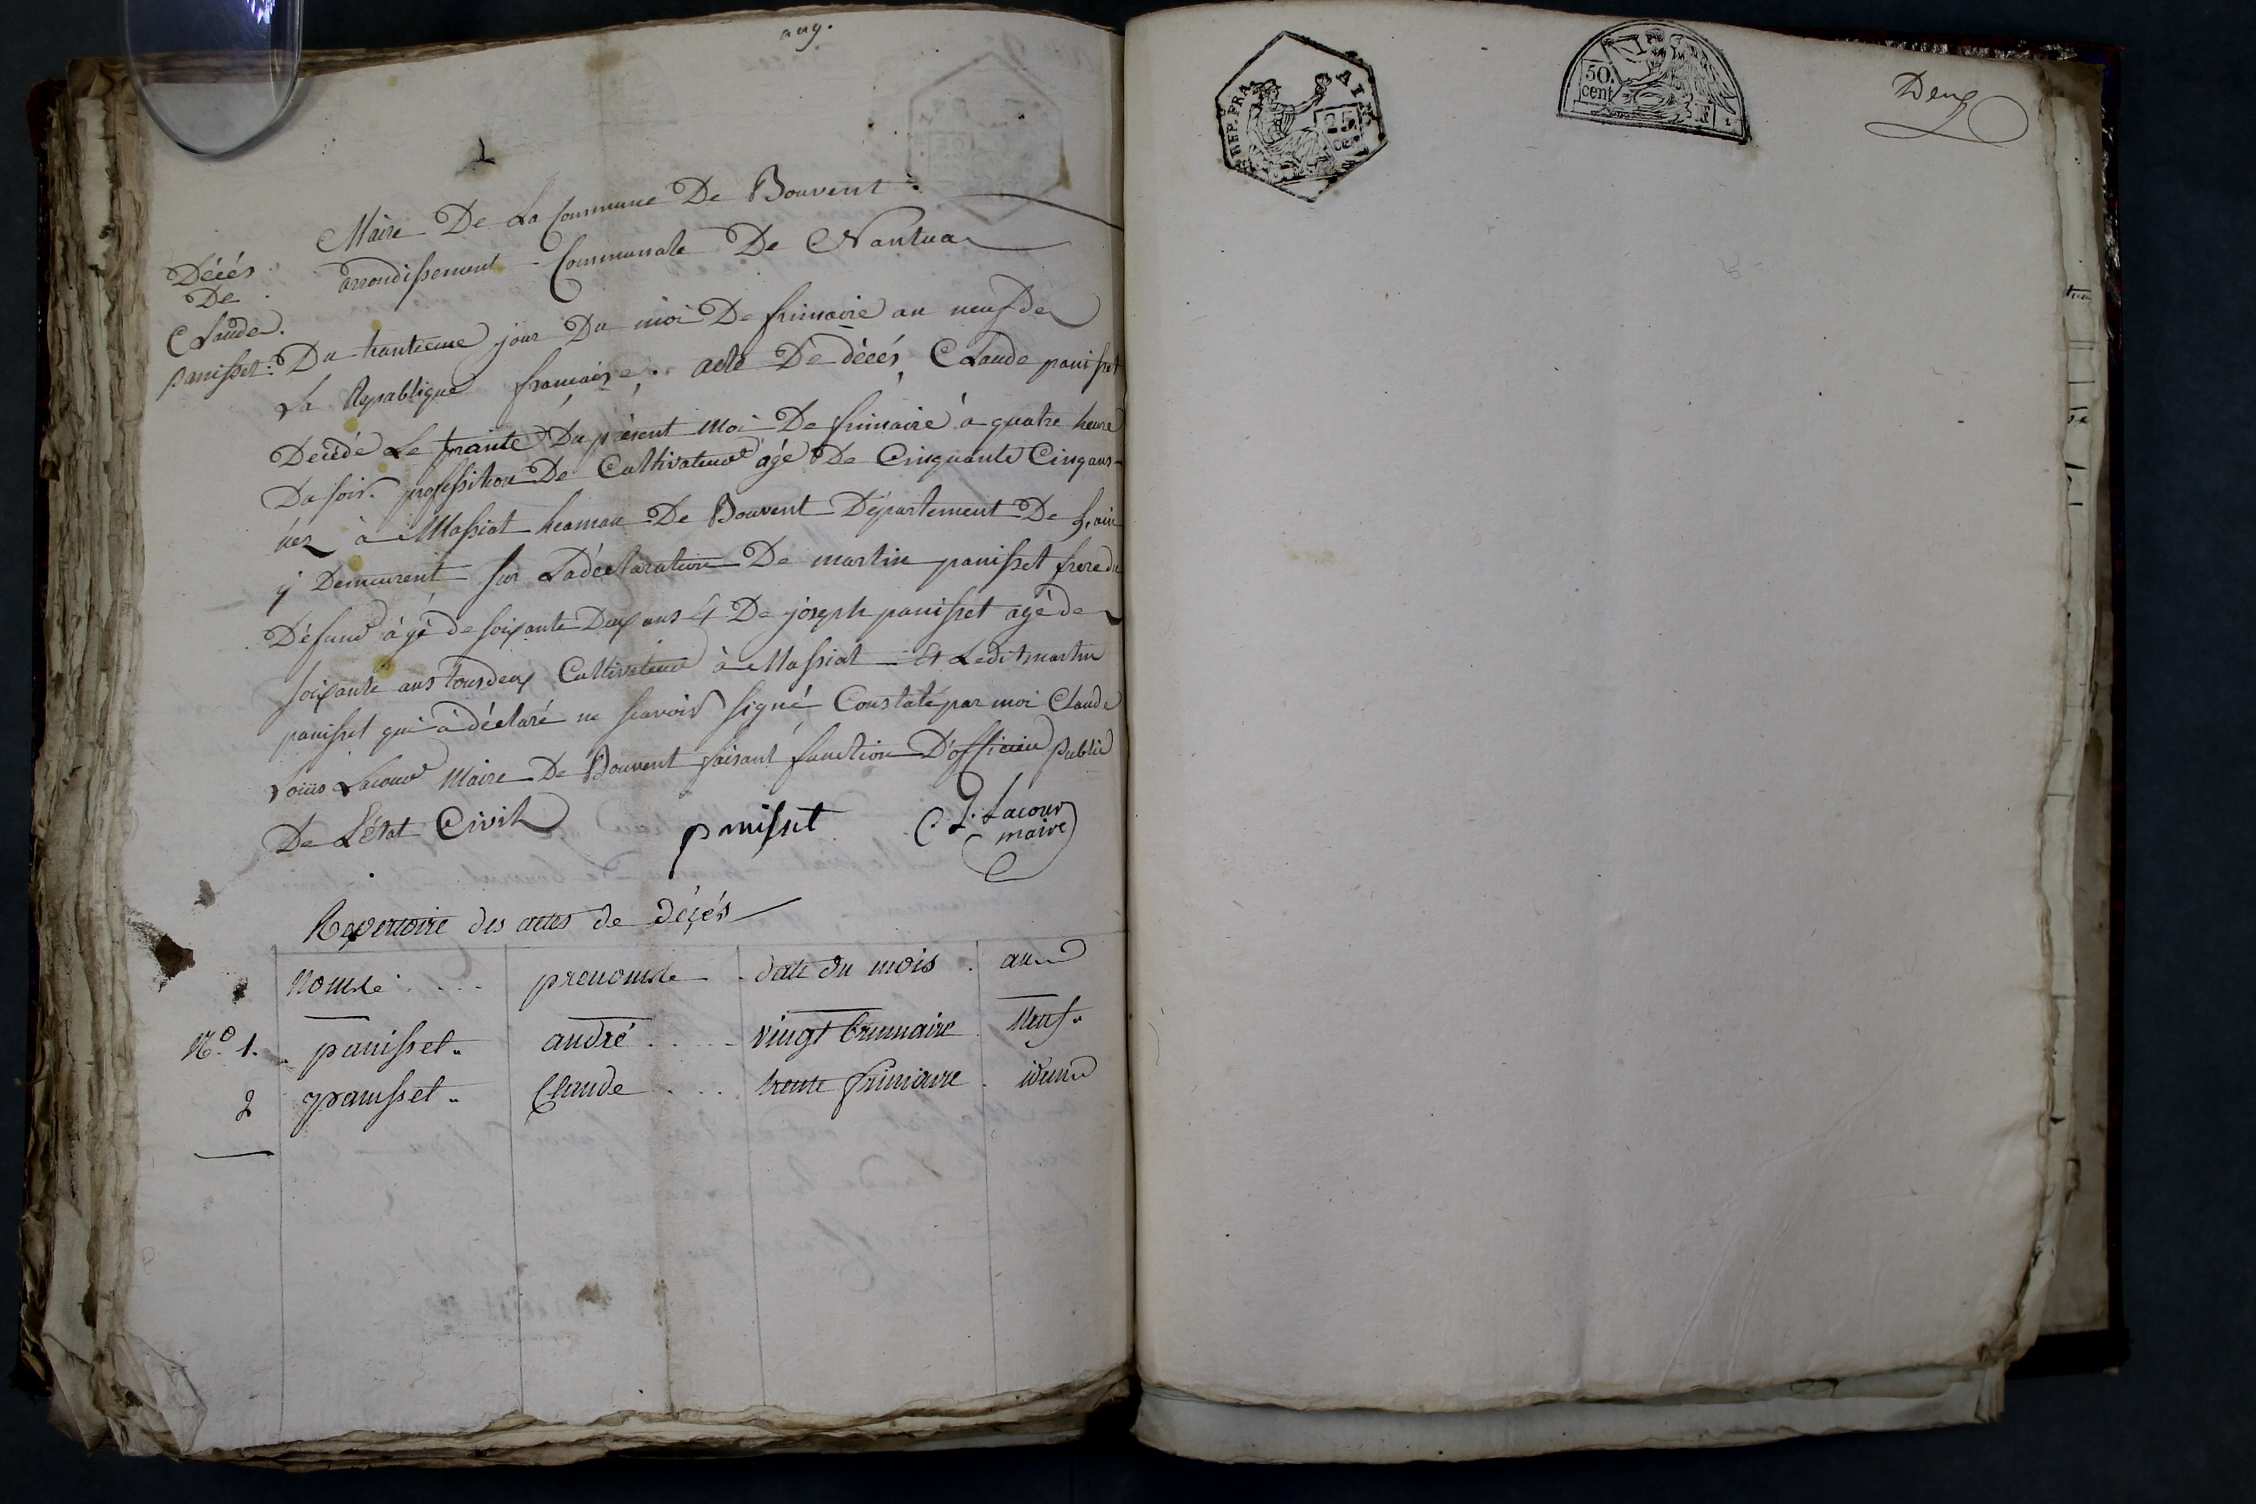 aug.
Maire De La Commune De Bouvent
arrondissement Communale De Nantua
Décés
De
Claude
panisset
Du tranteeme jour Du moi De frimaire an neuf de
La Republique francaise acte De décés Claude panisset
Decédé Le trante Du présent moi De frimaire a quatre heure
Du soir profession De Cultivateur agé De Cinquante Cinq ans
nez a Massiat hamau De Bouvent Département De Lain
y Demeurent sur La déclaration De martin panisset frere du
Défund agé de soixante Deux ans & De joseph panisset agé de
soixante ans tous deux Cultivateur à Massiat Et Ledit martin
panisset qui a déclaré ne scavoir signé Constaté par moi Claude
Louis Lacour Maire De Bouvent faisant function D'officier public
De L'état Civil
panisset
C. L. Lacour
maire
Repertoire des actes de décés
Nom de prenom de date du mois an
No. 1. panisset andré vingt brumaire Neuf
2 panisset Claude trente frimaire idem
REP. FRA
25
Cen
50
cent
Deux